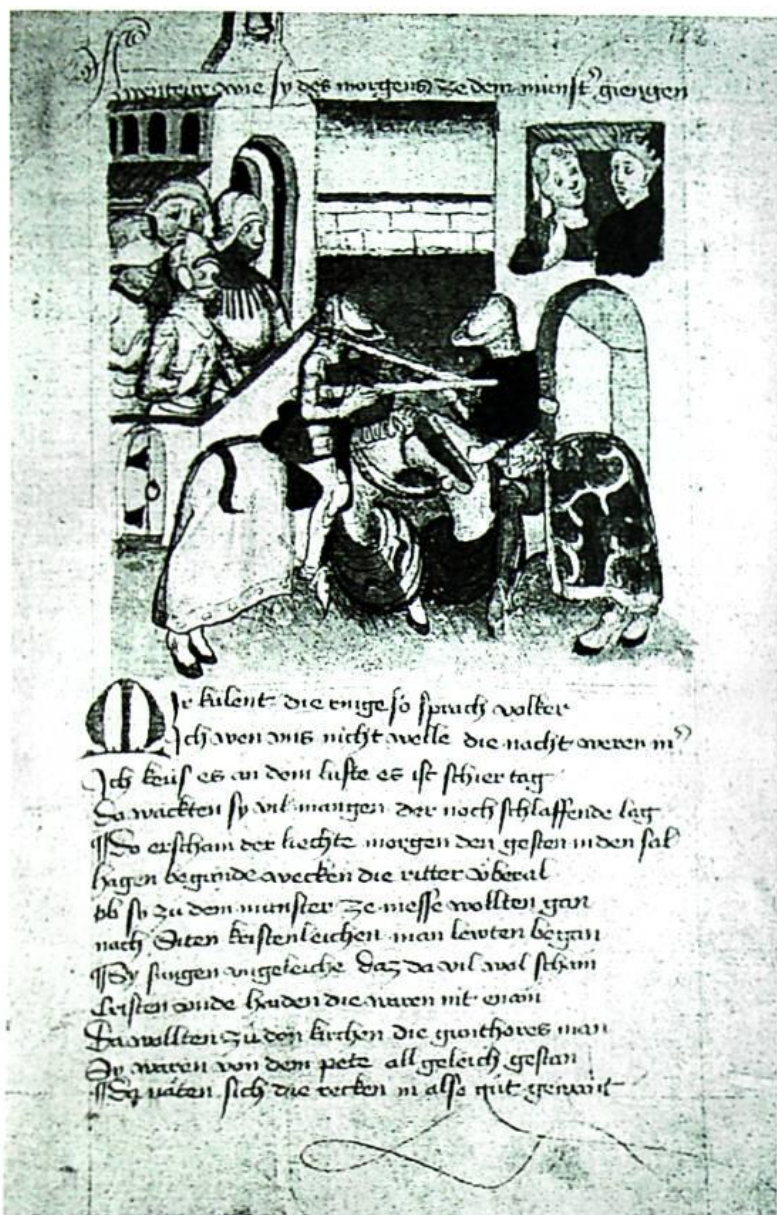 Awenteur wie sy des morgens ze dem munst᾽ giengen
Mir kulent die ringe so sprach volker
Ich wen uns nicht welle die nacht weren m᾽
Ich keus es an dem lufte es ist schier tag
Do wackten sy vil mangen der noch schlaffende lag
¶ Do erschain der liechte morgen den gesten in den sal
hagen begunde wecken die ritter vberal
ob sy zu dem munster ze messe wollten gan
nach Siten kristenleichen man lewten began
¶ Sy sungen vngeleiche daz da vil wol schain
Cristen vnde haiden die waren nit enain
Da wollten zu den kirchen die gunthores man
Sy waren von dem pete all geleich gestan
¶ Do naten sich die recken in also gut gewant